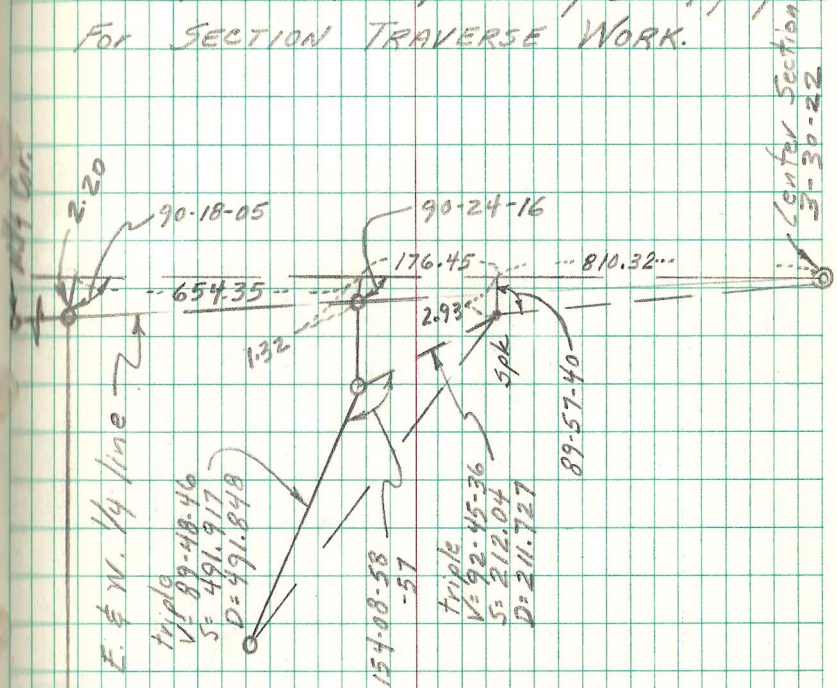 For SECTION TRAVERSE WORK.
Center Section
3-30-22
1/4 Cor.
2.20
90-18-05
90-24-16
176.45
810.32
654.35
2.93
1.32
Spk
89-57-40
E. & W. 1/4 line
triple
V= 89-48-46
S= 491.917
D= 491.848
154-08-58
-57
triple
V= 92-45-36
S= 212.04
D= 211.727